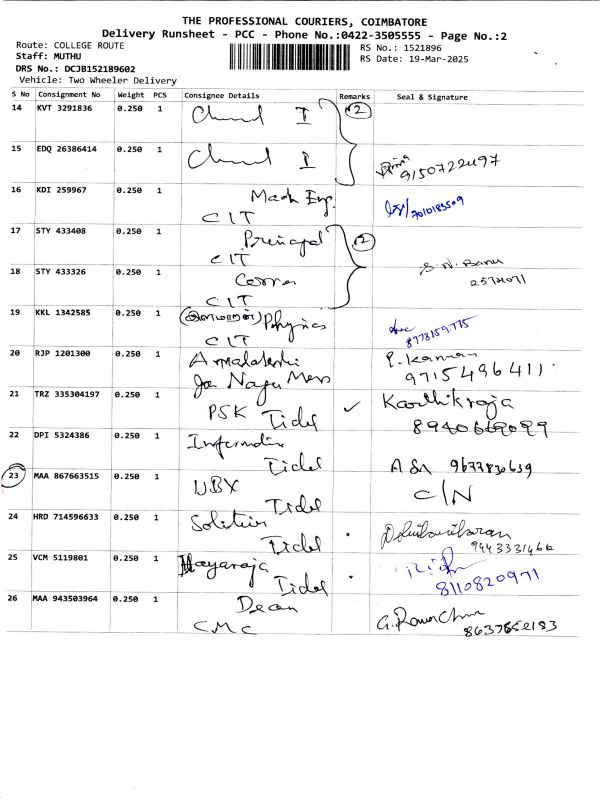 THE PROFESSIONAL COURIERS, COIMBATORE
Delivery Runsheet - PCC - Phone No.:0422-3505555 - Page No.:2
Route: COLLEGE ROUTE
Staff: MUTHU
DRS No.: DCJB152189602
Vehicle: Two Wheeler Delivery
RS No.: 1521896
RS Date: 19-Mar-2025
S No Consignment No Weight PCS Consignee Details Remarks Seal & Signature
14 KVT 3291836 0.250 1 I 2
15 EDQ 26386414 0.250 1 I
16 KDI 259967 0.250 1 Mech Eng.
CIT 7010183509
17 STY 433408 0.250 1 Principal 2
CIT
18 STY 433326 0.250 1 S.N. Banu
CIT
19 KKL 1342585 0.250 1 Physics
CIT 8778159775
20 RJP 1201300 0.250 1 P. Kannan
Nagar 9715496411
21 TRZ 335304197 0.250 1 PSK Tidel ✓ Karthikroja
22 DPI 5324386 0.250 1
Tidel 9677830639
23 MAA 867663515 0.250 1 UBX C/N
Tidel
24 HRD 714596633 0.250 1
Tidel 9443331466
25 VCM 5119801 0.250 1
Tidel 8110820971
26 MAA 943503964 0.250 1 Dean
CMC